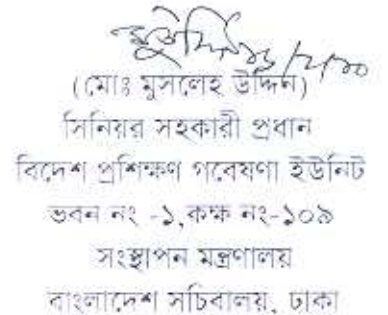 (মোঃ মুসলেহ উদ্দিন)
সিনিয়র সহকারী প্রধান
বিদেশ প্রশিক্ষণ গবেষণা ইউনিট
ভবন নং -১,কক্ষ নং-১০৯
সংস্থাপন মন্ত্রণালয়
বাংলাদেশ সচিবালয়, ঢাকা